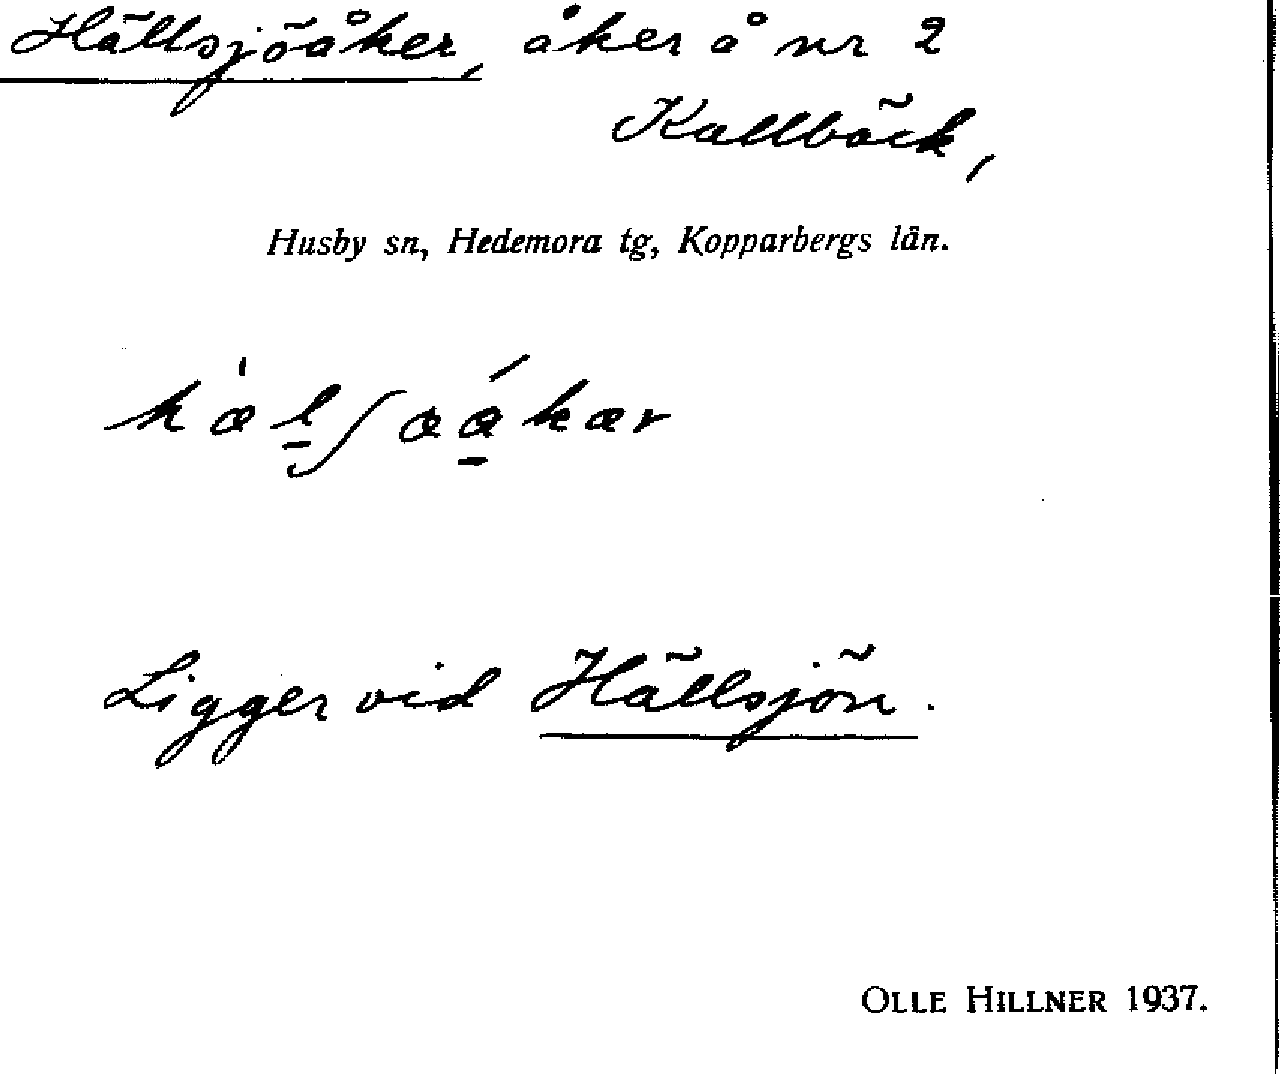 Hällsjöåker, åker å nr 2
Kallbäck,
Husby sn, Hedemora tg, Kopparbergs län.
Ligger vid Hällsjön.
OLLE HILLNER 1937.